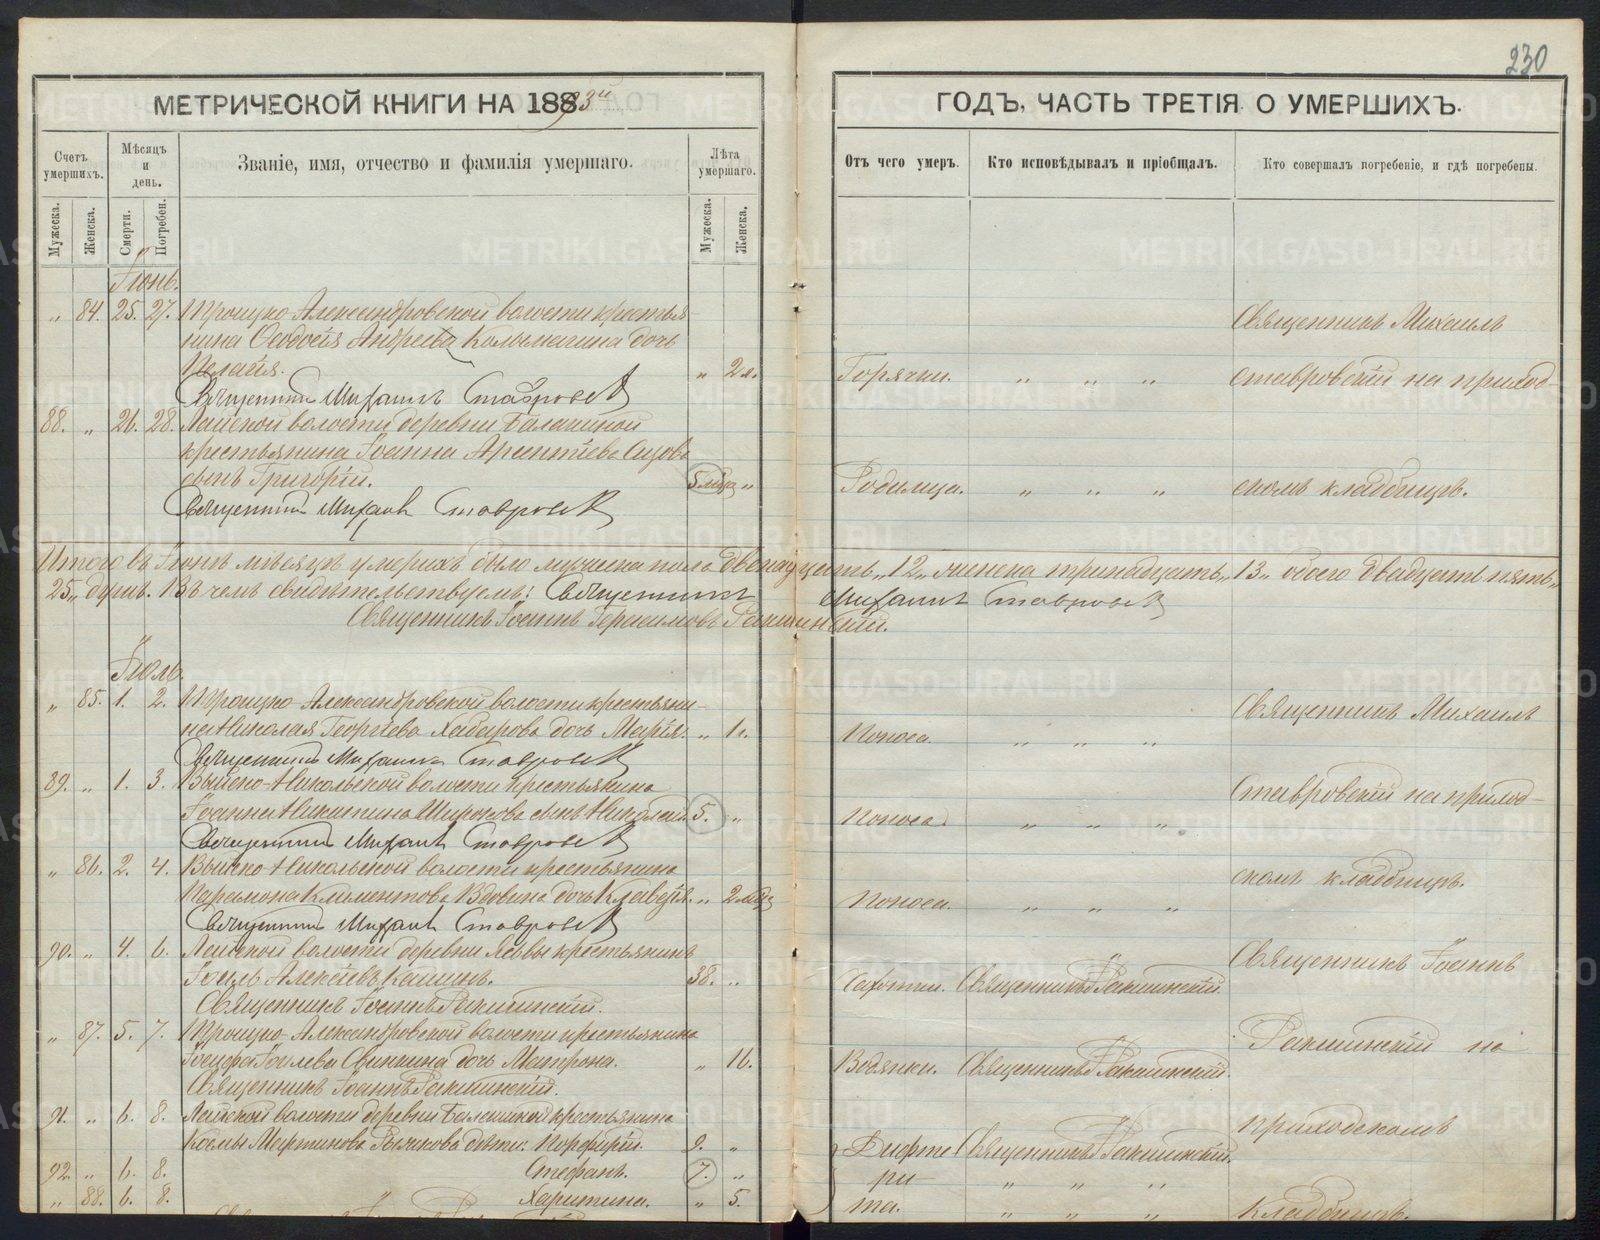 230
МЕТРИЧЕСКОЙ КНИГИ НА 1893й
ГОДЪ, ЧАСТЬ ТРЕТІЯ О УМЕРШИХЪ.
Счетъ умершихъ.
Мѣсяцъ и день.
Званіе, имя, отчество и фамилія умершаго.
Лѣта умершаго.
Отъ чего умеръ.
Кто исповѣдывалъ и пріобщалъ.
Кто совершалъ погребеніе, и гдѣ погребены.
Мужеска.
Женска.
Смерти.
Погребен.
Мужеска.
Женска.
Іюнь.
„ 84. 25. 27. Троицко-Александровской волости крестья
нина Ѳеодосія Андреева Колымагина дочь
Пелагія. „ 2 л. Горячки. „ „ „
Священникъ Михаилъ Ставровскій
88. „ 26. 28. Лайской волости деревни Балакиной
крестьянина Іоанна Арсентіева
сынъ Григорій. 5 мѣц. „ Родимца. „ „ „
Священникъ Михаилъ Ставровскій
Священникъ Михаилъ
Ставровскій на приход
скомъ кладбищѣ.
Итого въ Іюнѣ мѣсяцѣ умершихъ было мужеска пола двенадцать „12„ женска тринадцать „13„ обоего двадцать пять „
25„ душъ. Въ чемъ свидѣтельствуемъ: Священникъ Михаилъ Ставровскій
Священникъ Іоаннъ Герасимовъ Ракшинскій.
Іюль.
„ 85. 1. 2. Троицко-Александровской волости крестьяни-
на Николая Георгіева Хабарова дочь Марія. „ 1 г. Поноса. „ „ „
Священникъ Михаилъ Ставровскій
89. „ 1. 3. Выйско-Никольской волости крестьянина
Іоанна Никитина Широкова сынъ Николай. 5. „ Поноса. „ „ „
Священникъ Михаилъ Ставровскій
„ 86. 2. 4. Выйско-Никольской волости крестьянина
Парамона Климентова Вдовина дочь Клавдія. „ 2 мѣц. Поноса. „ „ „
Священникъ Михаилъ Ставровскій
Священникъ Михаилъ
Ставровскій на приход-
скомъ кладбищѣ.
90. „ 4. 6. Лайской волости деревни крестьянинъ
Іоиль Алексѣевъ Кашинъ. 38. „ Чахотки. Священникъ І. Ракшинскій.
Священникъ Іоаннъ Ракшинскій.
„ 87. 5. 7. Троицко-Александровской волости крестьянина
Іосифа Свинкина дочь Матрона. „ 16. Водянки. Священникъ І. Ракшинскій.
Священникъ Іоаннъ Ракшинскій.
91. „ 6. 8. Лайской волости деревни Балакиной крестьянина
Космы Мартинова Рычкова дѣти: Порфирій. 9. „ Дифте Священникъ І. Ракшинскій.
92. „ 6. 8. Стефанъ. 7. „ ри- „ „ „
„ 88. 6. 8. Харитина. „ 5. та. „ „ „
Священникъ Іоаннъ
Ракшинскій на
приходскомъ
кладбищѣ.
METRIKI.GASO-URAL.RU